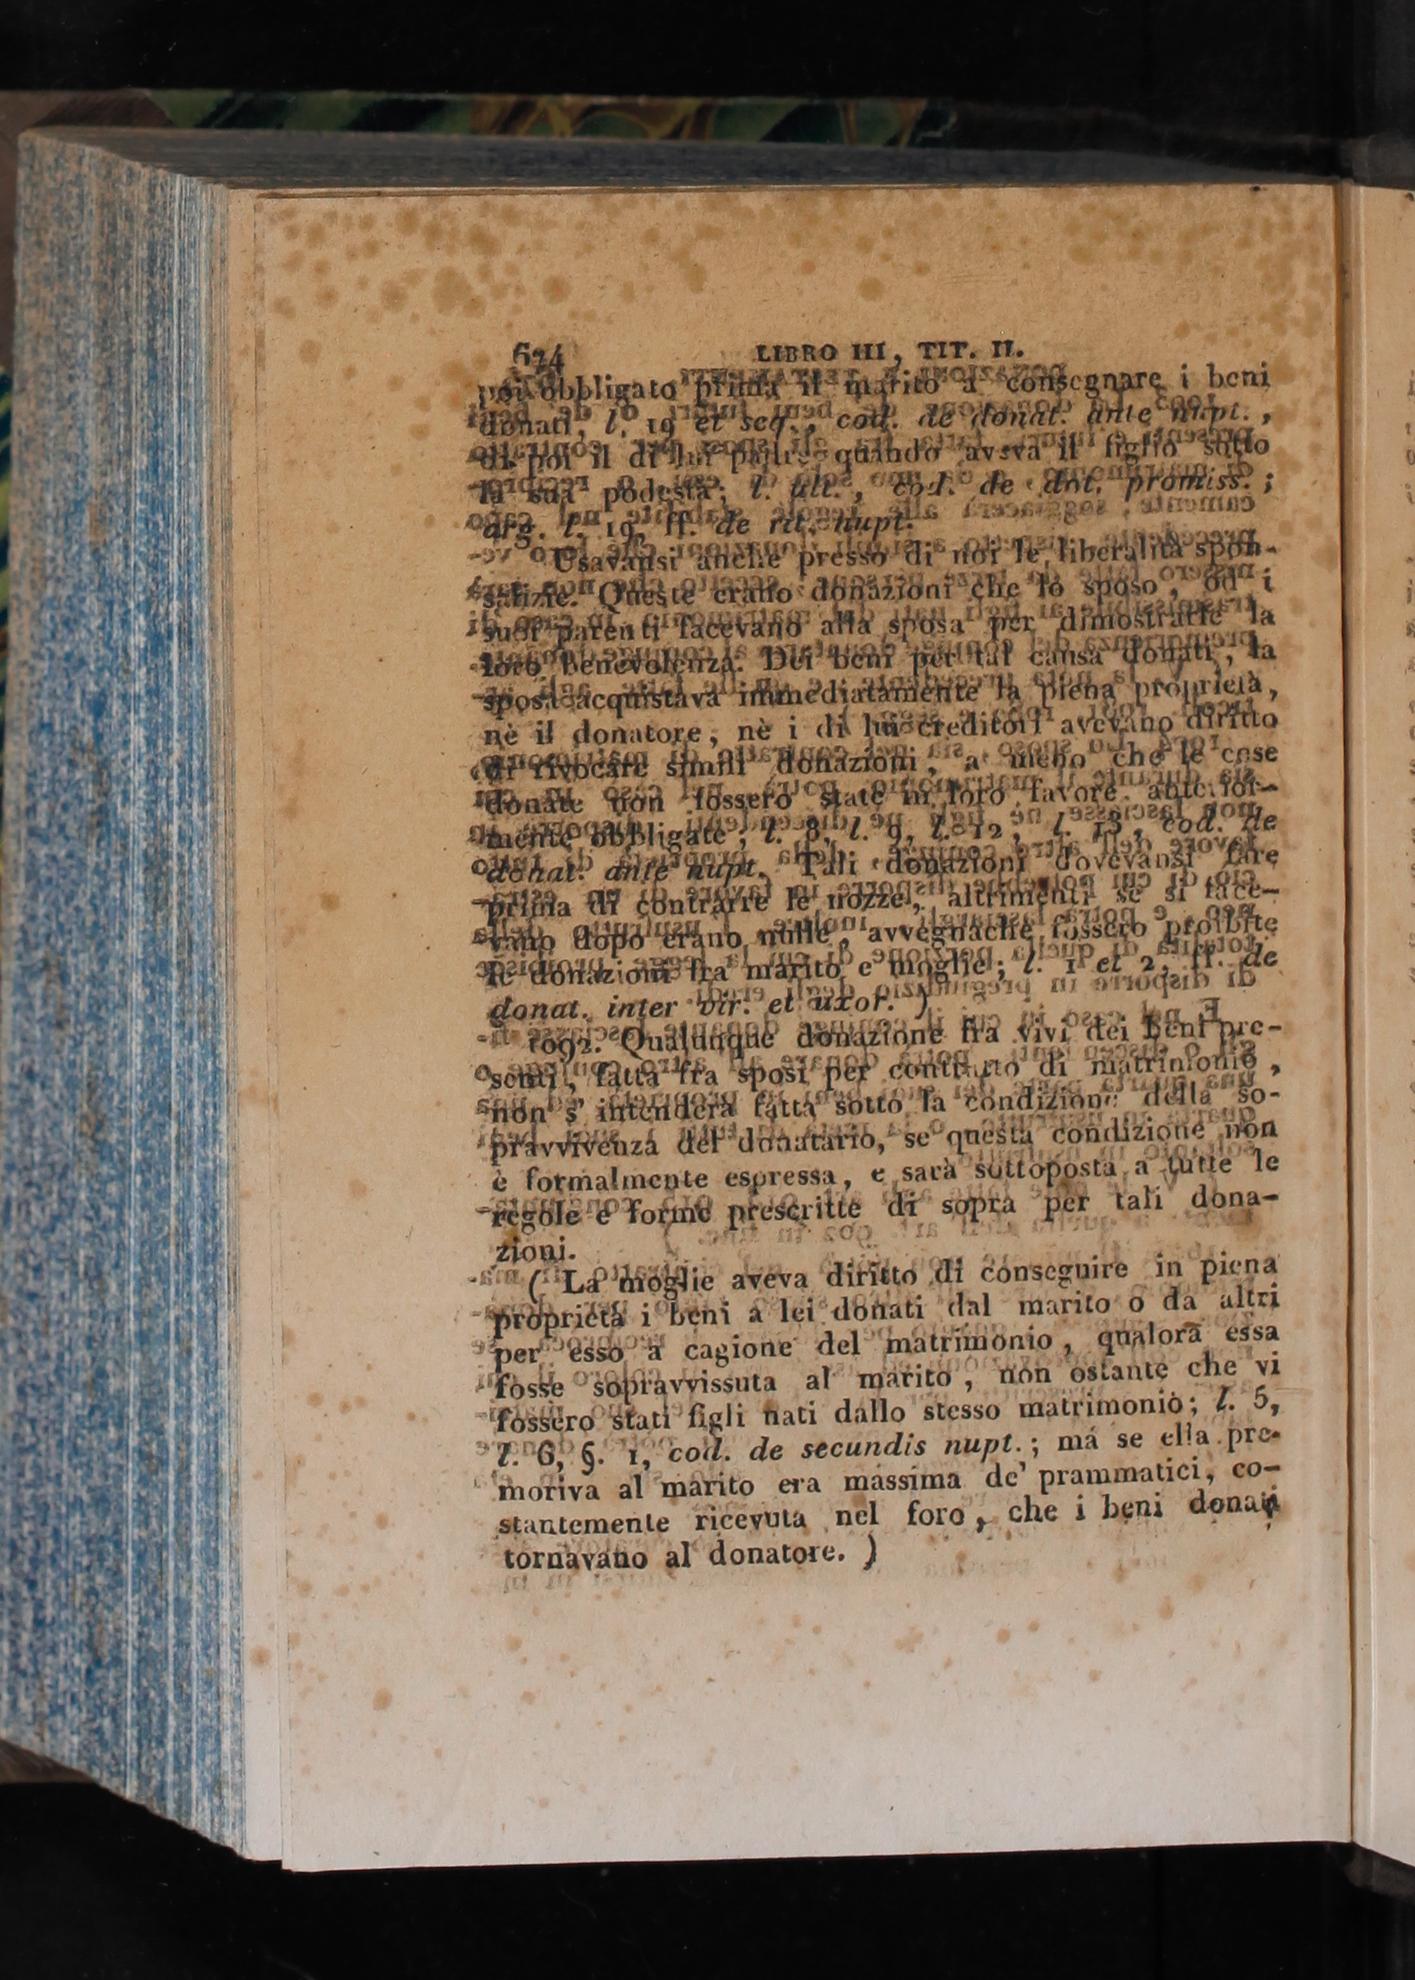 624 LIBRO III, TIT. II.
poi obbligato prima il marito a consegnare i beni
donati, l. 19 et seq., cod. de donat. ante nupt.,
di poi il di lui padre quando aveva il figlio sotto
la sua podestà; l. ult., cod. de dot. promiss.;
arg. l. 19, ff. de rit. nupt.
Usavansi anche presso di noi le liberalità spon-
salizie. Queste erano donazioni che lo sposo, od i
suoi parenti facevano alla sposa per dimostrarle la
loro benevolenza. Dei beni per tal causa donati, la
sposa acquistava immediatamente la piena proprietà,
nè il donatore, nè i di lui creditori avevano diritto
di rivocare simili donazioni, a meno che le cose
donate non fossero state in loro favore ante for-
mente obbligate; l. 8, l. 9, l. 12, l. 13, cod. de
donat. ante nupt. Tali donazioni dovevansi fare
prima di contrarre le nozze, altrimenti se si face-
vano dopo erano nulle, avvegnachè fossero proibite
le donazioni fra marito e moglie; l. 1 et 2, ff. de
donat. inter vir. et uxor. )
1092. Qualunque donazione fra vivi dei beni pre-
senti, fatta fra sposi per contratto di matrimonio,
non s' intenderà fatta sotto la condizione della so-
pravvivenza del donatario, se questa condizione non
è formalmente espressa, e sarà sottoposta a tutte le
regole e forme prescritte di sopra per tali dona-
zioni.
( La moglie aveva diritto di conseguire in piena
proprietà i beni a lei donati dal marito o da altri
per esso a cagione del matrimonio, qualora essa
fosse sopravvissuta al marito, non ostante che vi
fossero stati figli nati dallo stesso matrimonio; l. 5,
l. 6, §. 1, cod. de secundis nupt.; ma se ella pre-
moriva al marito era massima de' prammatici, co-
stantemente ricevuta nel foro, che i beni donati
tornavano al donatore. )